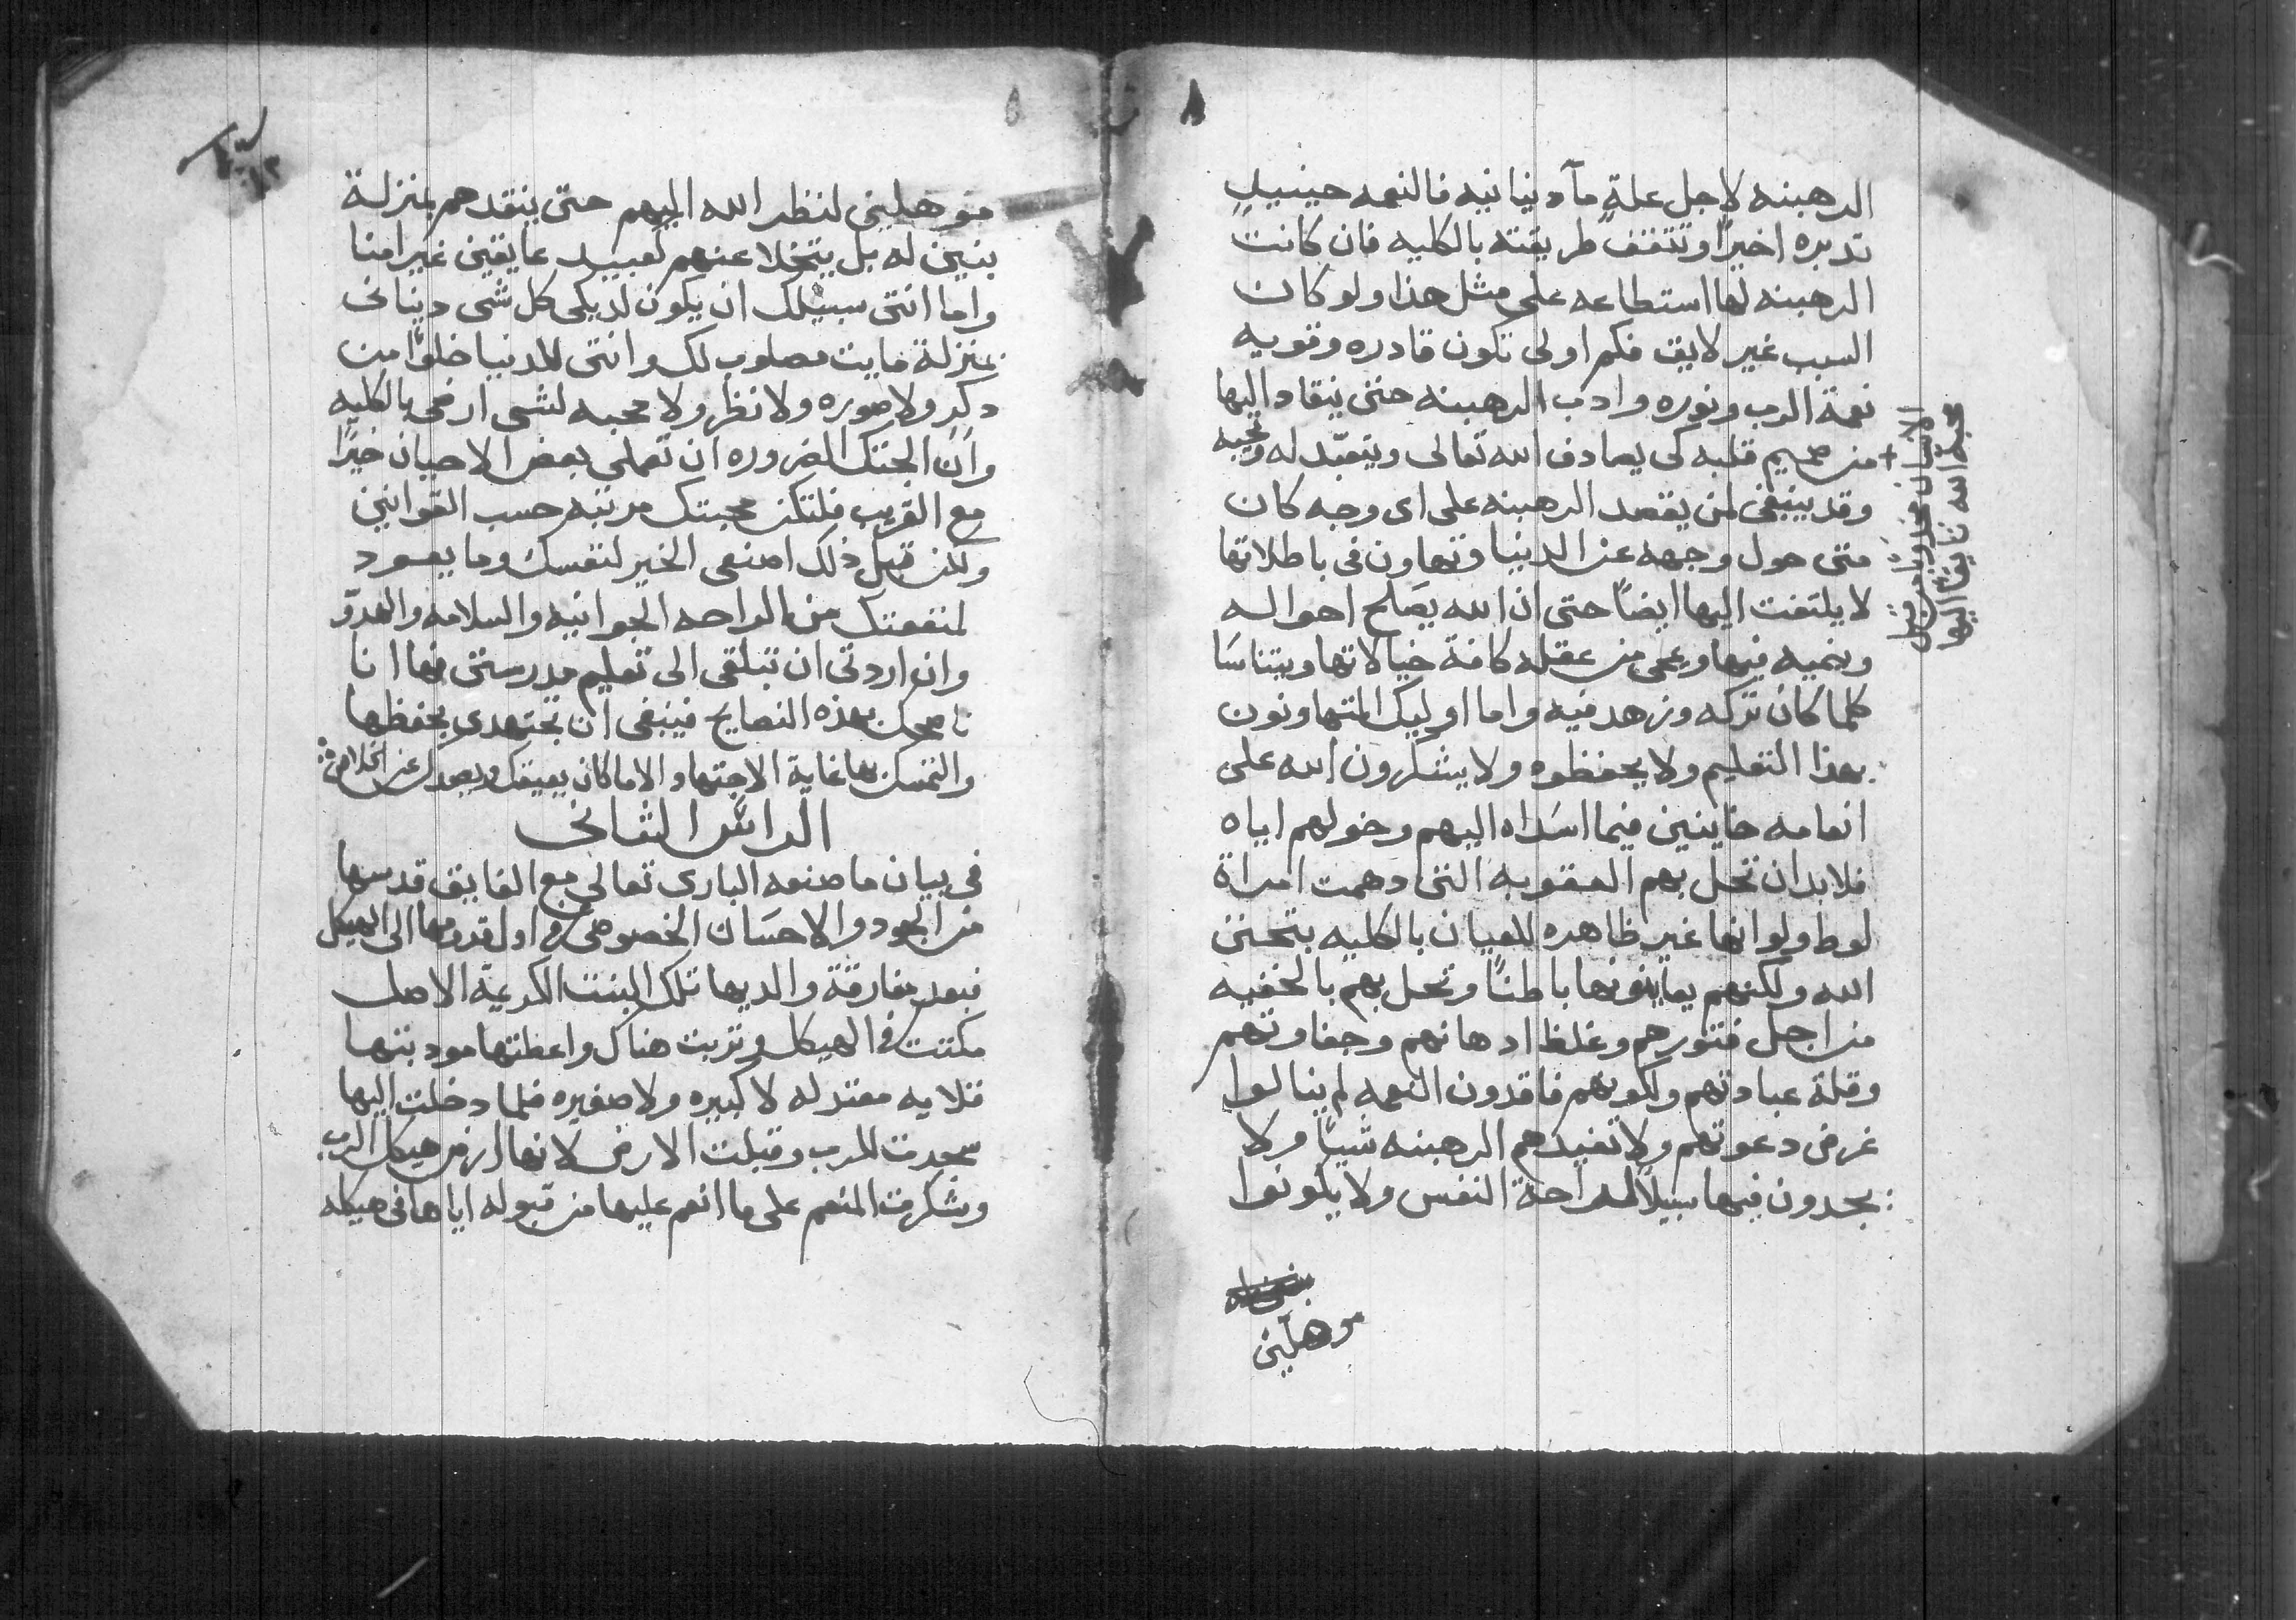 الرهبنه لاجل علةٍ مآ دنيانيه فالنعمه حينيذٍ
تدبره اخيرًا وتتثقف طريقته بالكليه فان كانت
الرهبنه لها استطاعه على مثل هذا ولو كان
السبب غير لايق فكم اولى تكون قادره وقويه
نعمة الرب ونوره وادب الرهبنه حتى ينقاد اليها
+ من صميم قلبه كى يصادف الله تعالى ويتعبّد له ويحبه
وقد ينبغى لمن يقصد الرهبنه على اى وجه كان
متى حول وجهه عن الدنيا وتهاون فى باطلاتها
لا يلتفت اليها ايضًا حتى ان الله يصَلح احواله
وينميه فيها ويمحى من عقله كافة خيالاتها ويتناسَا
كلما كان تركه وزهد فيه واما اوليك المتهاونون
بهذا التعليم ولا يحفظوه ولا يشكرون الله على
انعامه خاينين فيما اسَداه اليهم وخولهم اياه
فلا بد ان تحل بهم العقوبه التى دهمت امراة
لوط ولو انها غير ظاهره للعيان بالكليه بتحنن
الله ولكنهم يعاينونها باطنًا وتحل بهم بالخفيه
من اجل فتورهم وغلظ ادهانهم وجفاوتهم
وقلة عبادتهم ولكونهم فاقدون النعمه لم ينالوا
غرض دعوتهم ولا تفيدهم الرهبنه شيًا ولا
يجدون فيها سبيلاً لراحة النفس ولا يكونوا
موهلين
الانسان مجذوبًا من قبل
محبة الله تايقًا اليها
موهلين لنظر الله اليهم حتى ينقدهم بمنزلة
بنين له بل يتخلا عنهم كعبيد عايقين غير امنا
واما انتى سبيلك ان يكون لديكى كل شى دنيانى
بمنزلة مايت مصلوب لك وانتى للدنيا خلوًا من
دكرٍ ولا صوره ولا نظر ولا محبه لشى ارضى بالكليه
وان الجتك الضروره ان تعملى بعض الاحيان خيرًا
مع القريب فلتكن محبتك مرتبه حسب القوانين
ولكن قبل ذلك اصنعى الخير لنفسك وما يعود
لمنفعتك من الراحه الجوانيه والسلامه والهدوّ
وان اردتى ان تبلغى الى تعليم مدرستى فها انا
ناصحك بهذه النصايح فينبغى ان تجتهدى بحفظها
والتمسك بها غاية الاجتهاد والا ما كان يعيقك ويصدك عن الخلاص
الراس الثانى
فى بيان ما صنعه البارى تعالى مع الفايق قدسها
من الجود والاحسَان الخصوصى فى اول قدومها الى الهيكل
فبعد مفارقة والديها تلك البنت الكريمة الاصل
مكتت فى الهيكل وتربت هناك واعطتها مودبتها
قلايه معتدله لا كبيره ولا صغيره فلما دخلت اليها
سجدت للرب وقبلت الارض لانها ارض هيكل الرب
وشكرت المنعم على ما انعم عليها من قبوله اياها فى هيكله